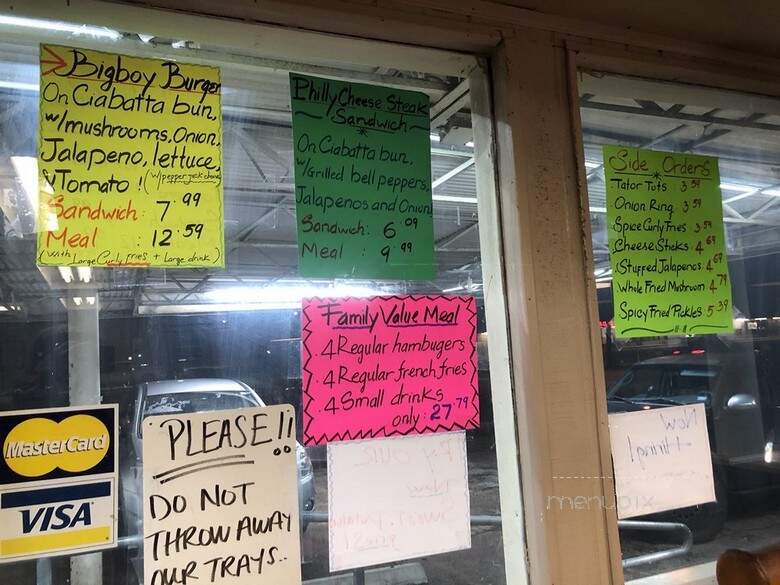 Bigboy Burger
On Ciabatta bun,
w/mushrooms, Onion,
Jalapeno, lettuce,
& Tomato! (w/pepper jack cheese
Sandwich: 7.99
Meal : 12.59
(with Large Curly fries + Large drink)
Philly Cheese Steak
Sandwich
On Ciabatta bun,
w/Grilled bell peppers,
Jalapenos and Onion
Sandwich: 6.09
Meal : 9.99
Family Value Meal
4 Regular hambugers
4 Regular french fries
4 Small drinks
only: 27.79
Side Orders
Tator Tots 3.59
Onion Ring 3.59
Spice Curly Fries 3.59
Cheese Sticks 4.69
Stuffed Jalapenos 4.69
Whole Fried Mushroom 4.79
Spicy Fried Pickles 5.39
MasterCard
VISA
PLEASE!!
DO NOT
THROW AWAY
OUR TRAYS..
Now
Hiring!
menupix